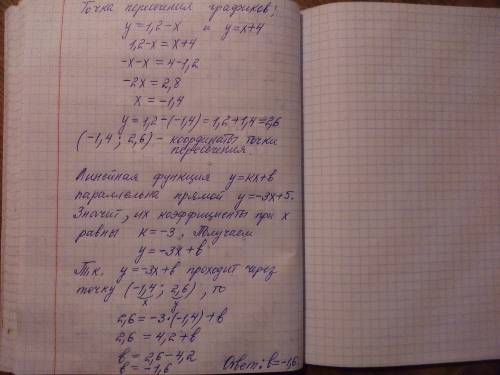 Точка пересечения графиков:
y = 1,2-x и y = x+4
1,2-x = x+4
-x-x = 4-1,2
-2x = 2,8
x = -1,4
y = 1,2-(-1,4) = 1,2+1,4 = 2,6
(-1,4; 2,6) - координаты точки
пересечения.
Линейная функция y = кx+b
параллельна прямой y = -3x+5.
Значит, их коэффициенты при x
равны к = -3. Получаем
y = -3x+b
Т.к. y = -3x+b проходит через
точку (-1,4; 2,6), то
x y
2,6 = -3·(-1,4)+b
2,6 = 4,2+b
b = 2,6-4,2
b = -1,6 Ответ: b = -1,6